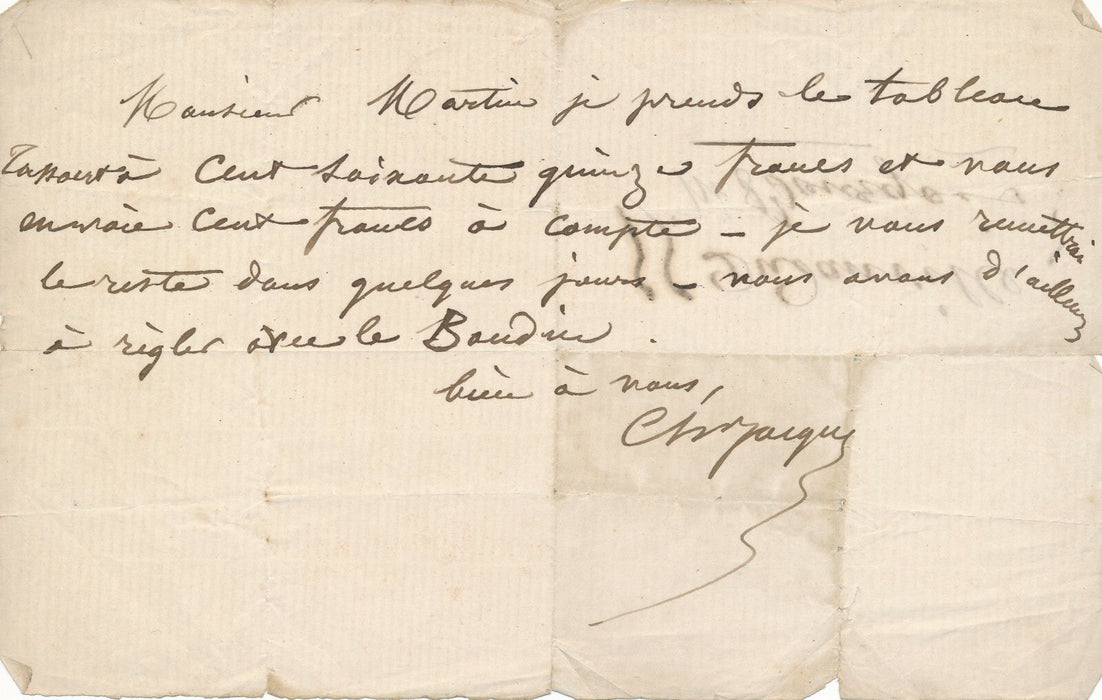 Monsieur Martin je prends le tableau
Tassaert à cent soixante quinze francs et vous
envoie cent francs à compte - je vous remettrai
le reste dans quelques jours - nous avons d'ailleurs
à règler avec le Boudin.
bien à vous,
Ch. Jacque